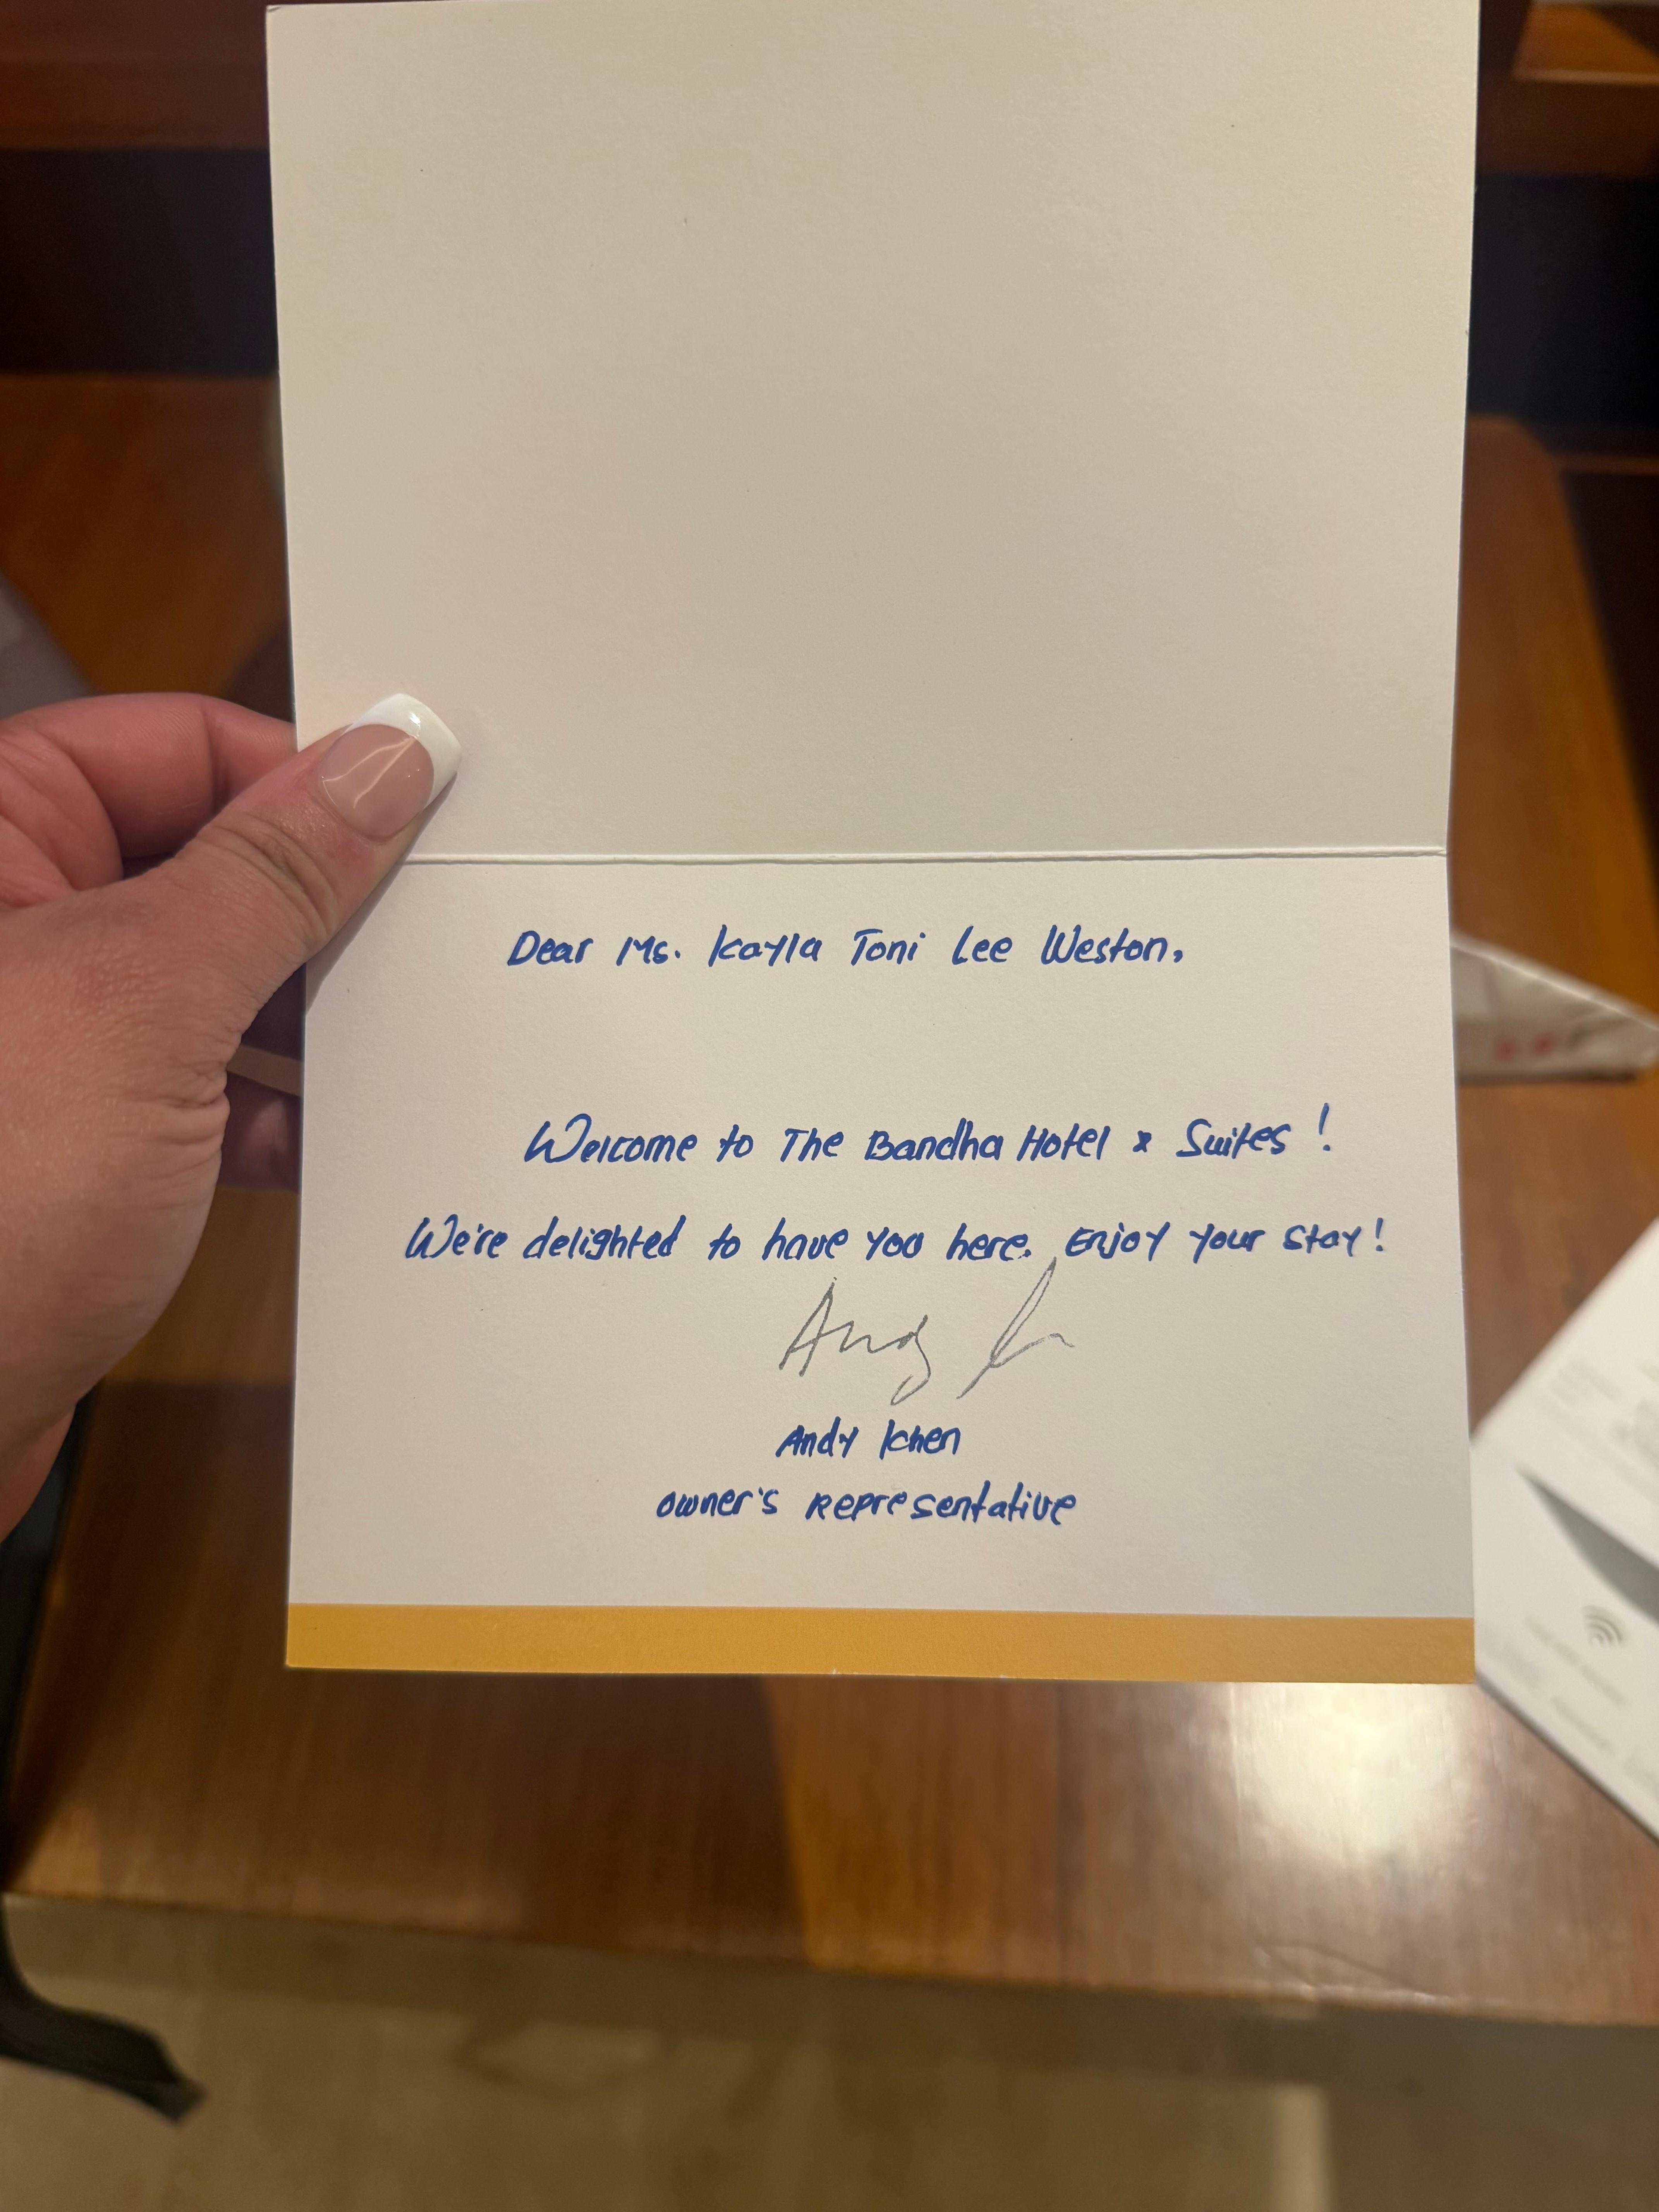 Dear Ms. Kayla Toni Lee Weston,
Welcome to The Bandha Hotel & Suites !
We're delighted to have you here. Enjoy your stay!
Andy
Andy Ichen
Owner's Representative